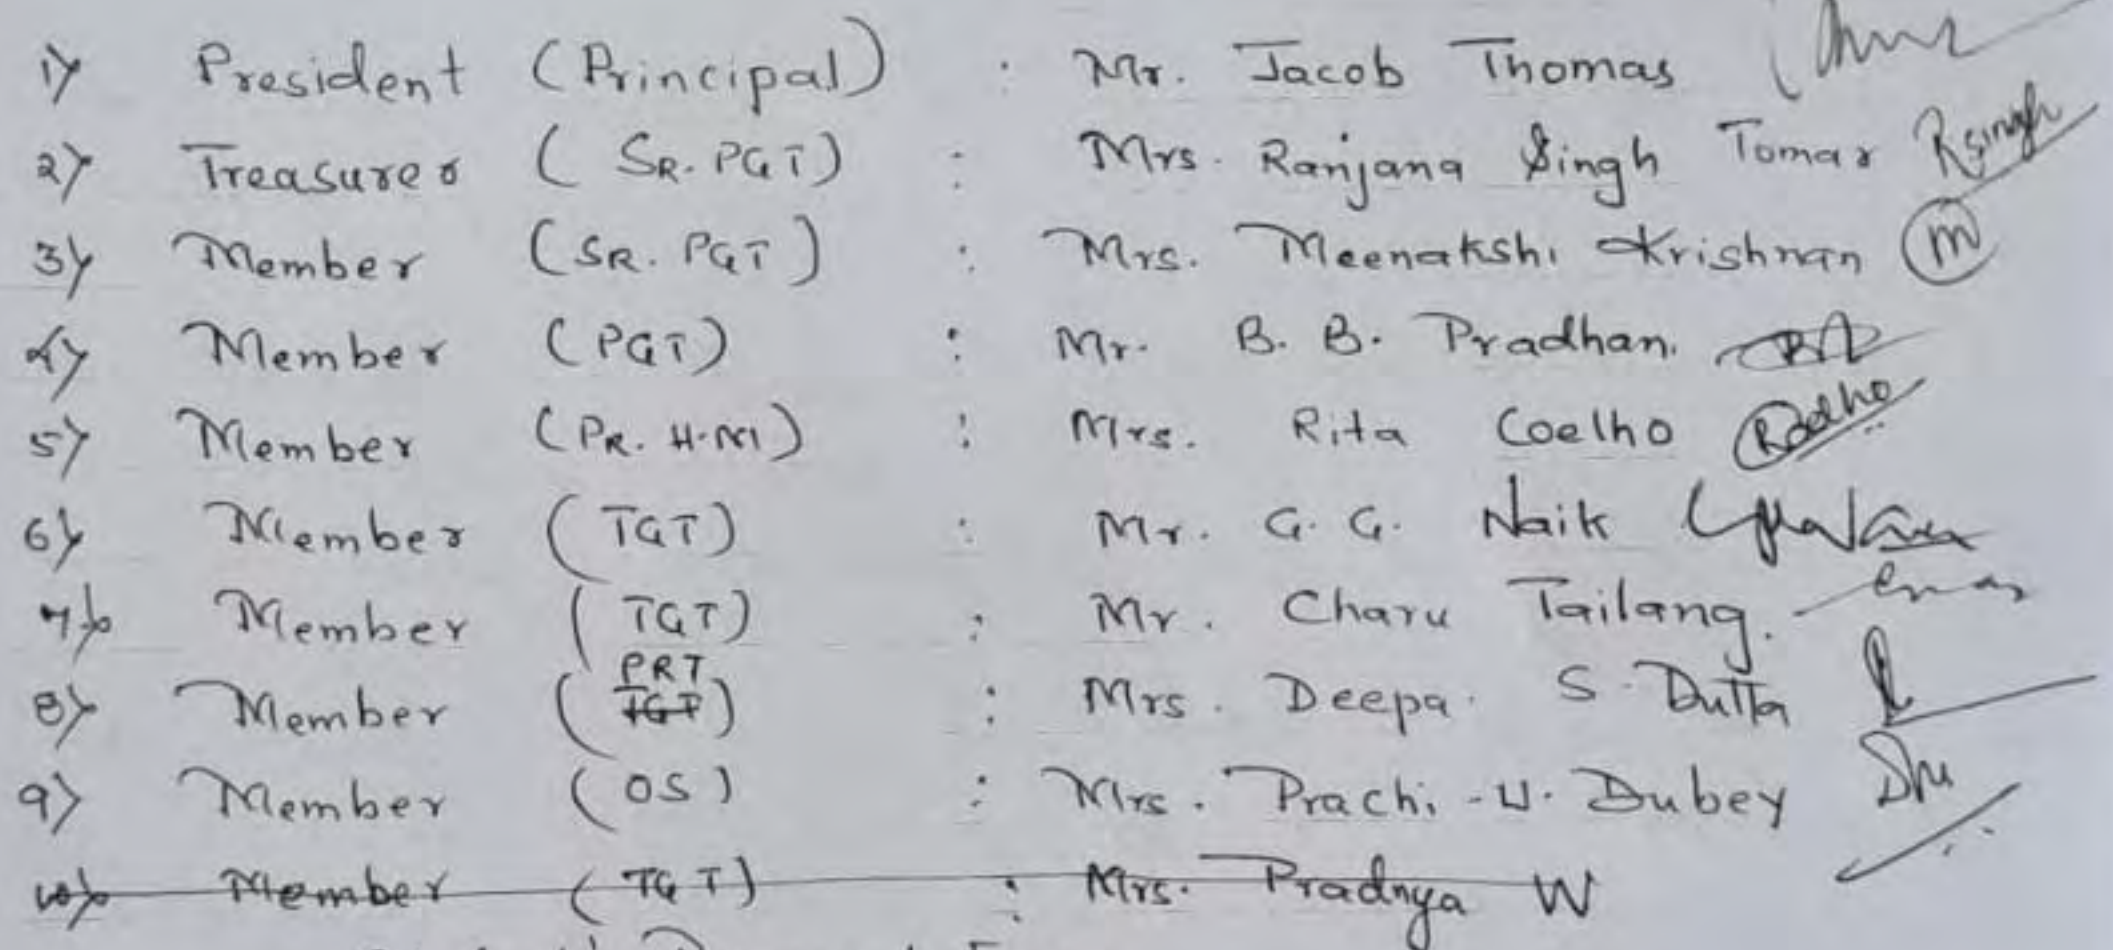 1) President (Principal) : Mr. Jacob Thomas
2) Treasurer (SR. PGT) : Mrs. Ranjana Singh Tomar RSingh
3) Member (SR. PGT) : Mrs. Meenakshi Krishnan M
4) Member (PGT) : Mr. B. B. Pradhan.
5) Member (PR. H.M) : Mrs. Rita Coelho
6) Member (TGT) : Mr. G. G. Naik
7) Member (TGT) : Mr. Charu Tailang.
8) Member (PRT TGT) : Mrs. Deepa S. Dutta
9) Member (OS) : Mrs. Prachi U. Dubey
10) Member (TGT) : Mrs. Pradnya W